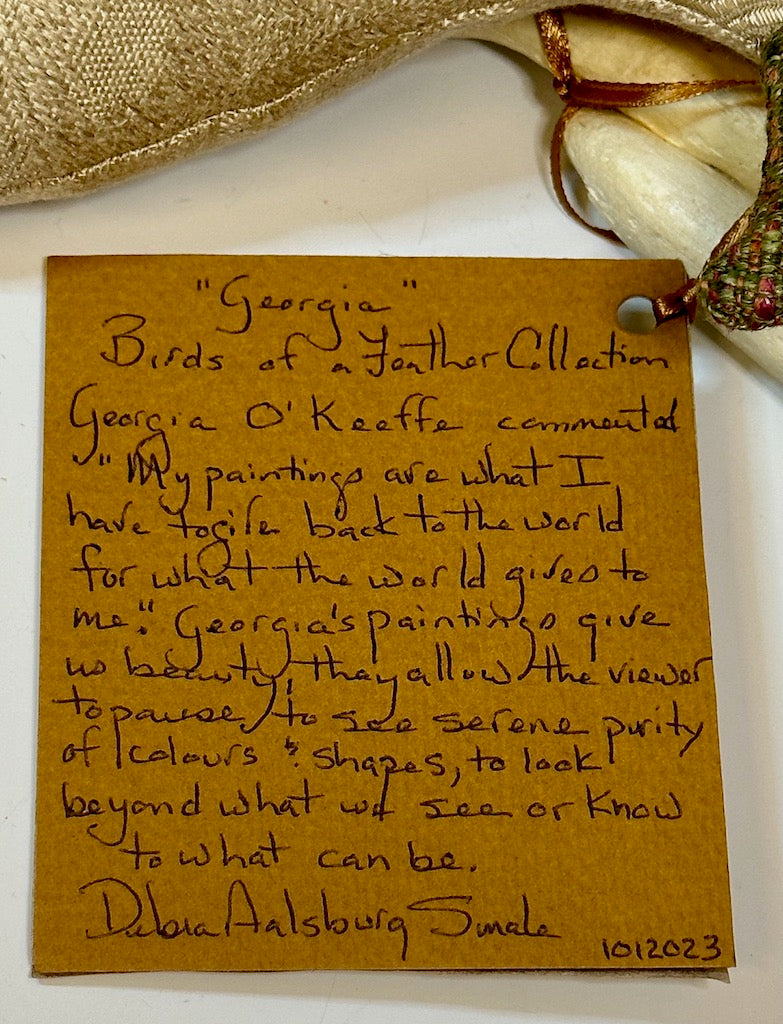 "Georgia"
Birds of a Feather Collection
Georgia O'Keeffe commented
"My paintings are what I
have to give back to the world
for what the world gives to
me". Georgia's paintings give
us beauty, they allow the viewer
to pause, to see serene purity
of colours & shapes, to look
beyond what we see or know
to what can be.
Debra Aalsburg Smale
1012023